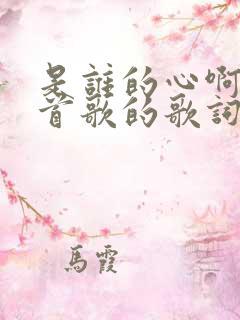 是誰的心啊
首歌的歌詞
馬霞